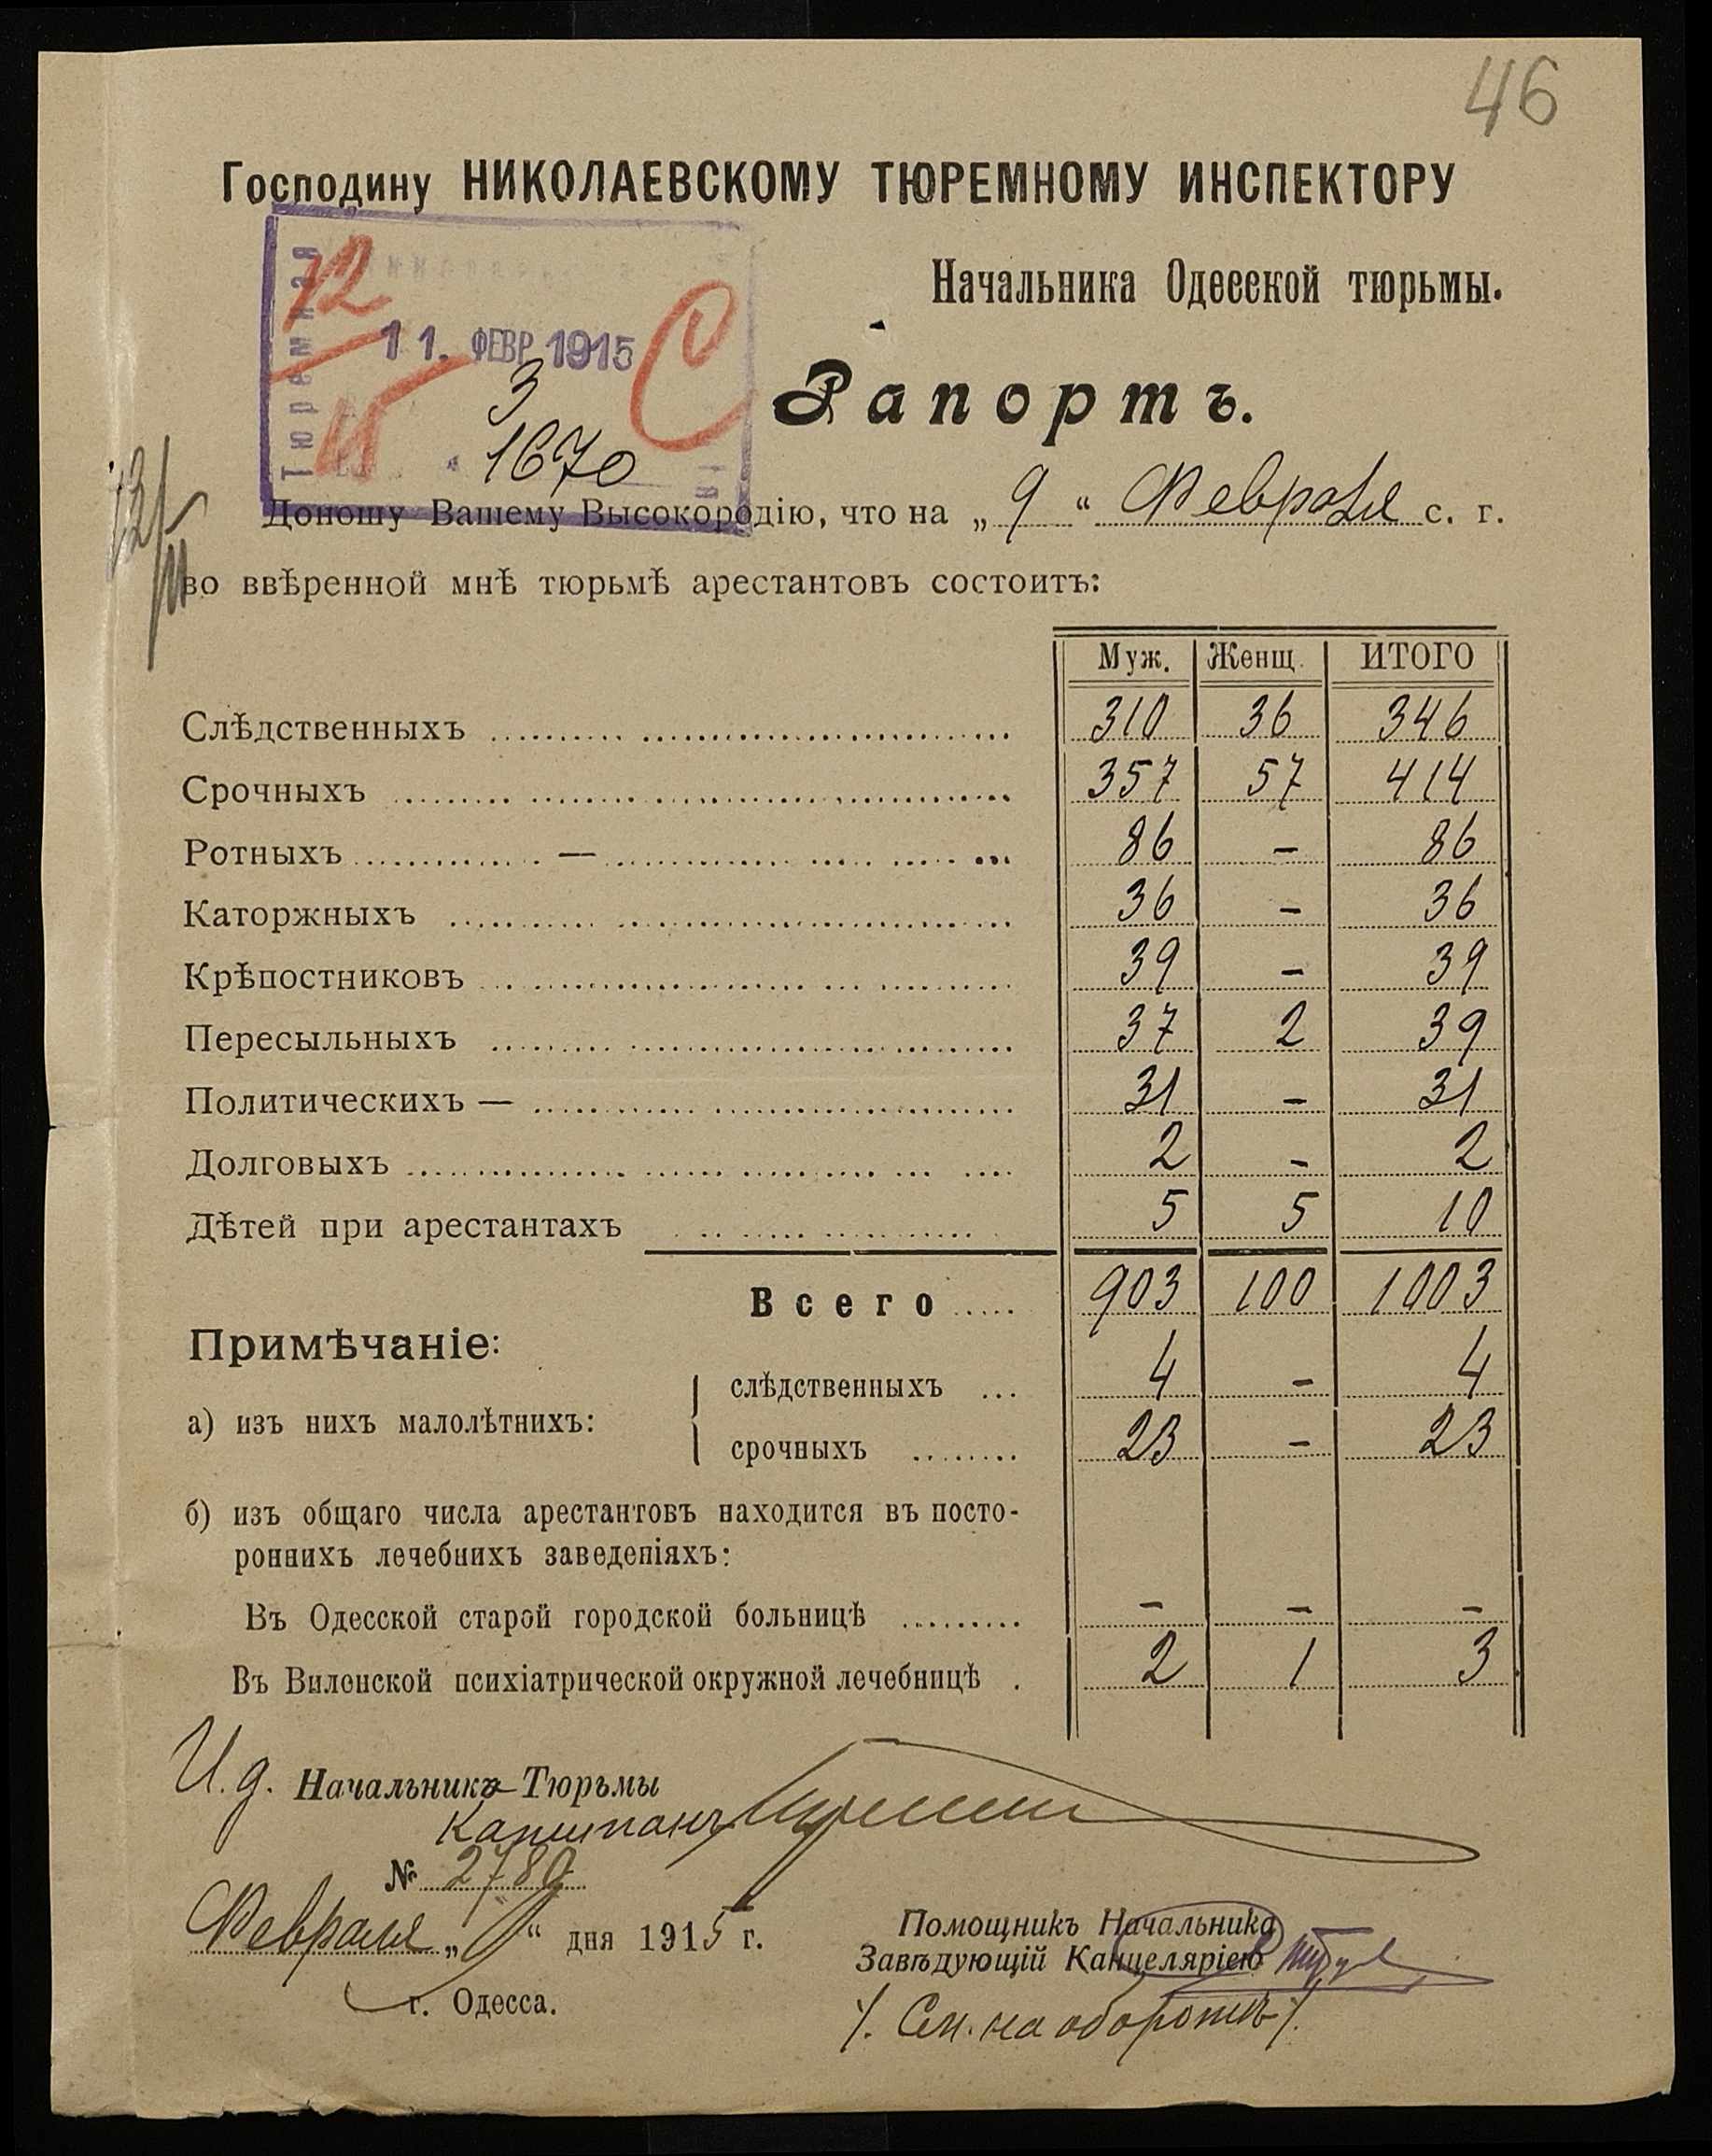 46
Господину НИКОЛАЕВСКОМУ ТЮРЕМНОМУ ИНСПЕКТОРУ
Начальника Одесской тюрьмы.
Тюремная
12
11. ФЕВР 1915
С
3
1670
Рапортъ.
Доношу Вашему Высокородію, что на „ 9 “ Февраля с. г.
во ввѣренной мнѣ тюрьмѣ арестантовъ состоитъ:
Муж. Женщ. ИТОГО
Слѣдственныхъ 310 36 346
Срочныхъ 357 57 414
Ротныхъ — 86 – 86
Каторжныхъ 36 – 36
Крѣпостниковъ 39 – 39
Пересыльныхъ 37 2 39
Политическихъ — 31 – 31
Долговыхъ 2 – 2
Дѣтей при арестантахъ 5 5 10
Всего 903 100 1003
Примѣчаніе:
слѣдственныхъ 4 – 4
а) изъ нихъ малолѣтнихъ:
срочныхъ 23 – 23
б) изъ общаго числа арестантовъ находится въ посто-
роннихъ лечебнихъ заведеніяхъ:
Въ Одесской старой городской больницѣ – – –
Въ Виленской психіатрической окружной лечебницѣ 2 1 3
И. д. Начальника Тюрьмы
Капитанъ
№ 2789
Февраля „ 9 “ дня 1915 г.
г. Одесса.
Помощникъ Начальника
Завѣдующій Канцеляріею
/. См. на оборотѣ /.